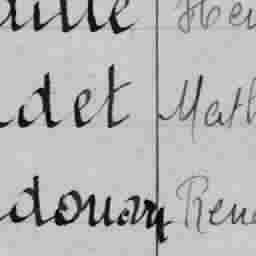 dille Hen
det Math
douary René